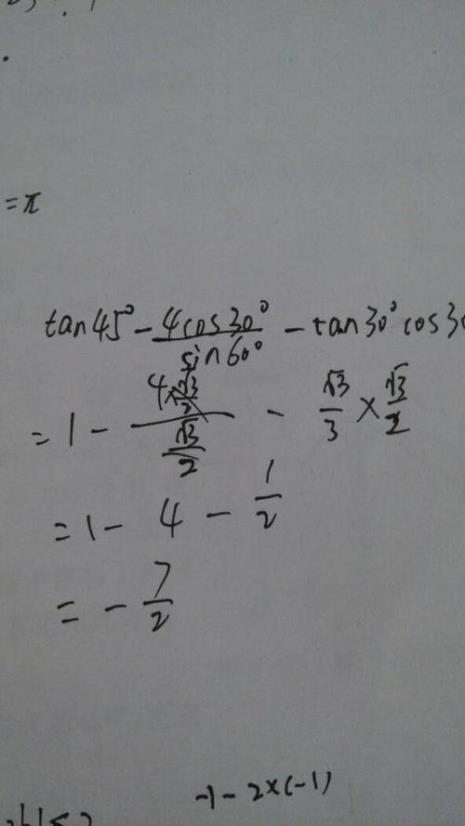 =π
tan45°-4cos30°/sin60°-tan30°cos3
=1-(4×√3/2)/(√3/2)-√3/3×√3/2
=1-4-1/2
=-7/2
-1-2×(-1)